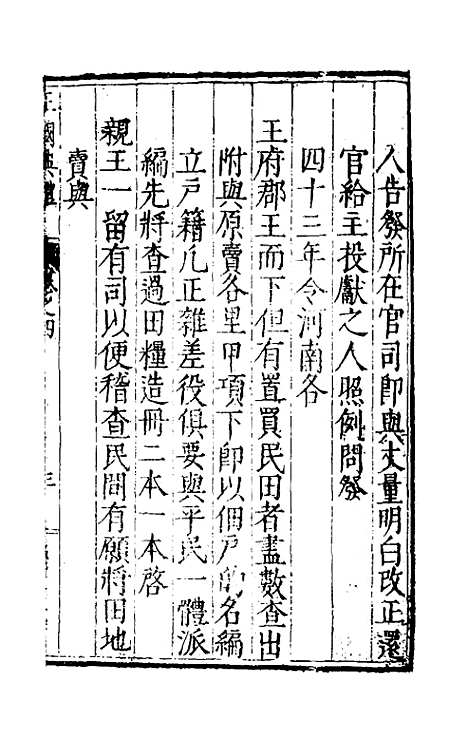 人告發所在官司卽與丈量明白改正還
官給主投獻之人照例問發
四十三年令河南各
王府郡王而下但有置買民田者盡數查出
附與原賣各里甲項下卽以佃戶的名編
立戶籍凡正雜差役俱要與平民一體派
編先將查過田糧造冊二本一本啓
親王一留有司以便稽查民間有願將田地
賣與
王國典禮
卷之四